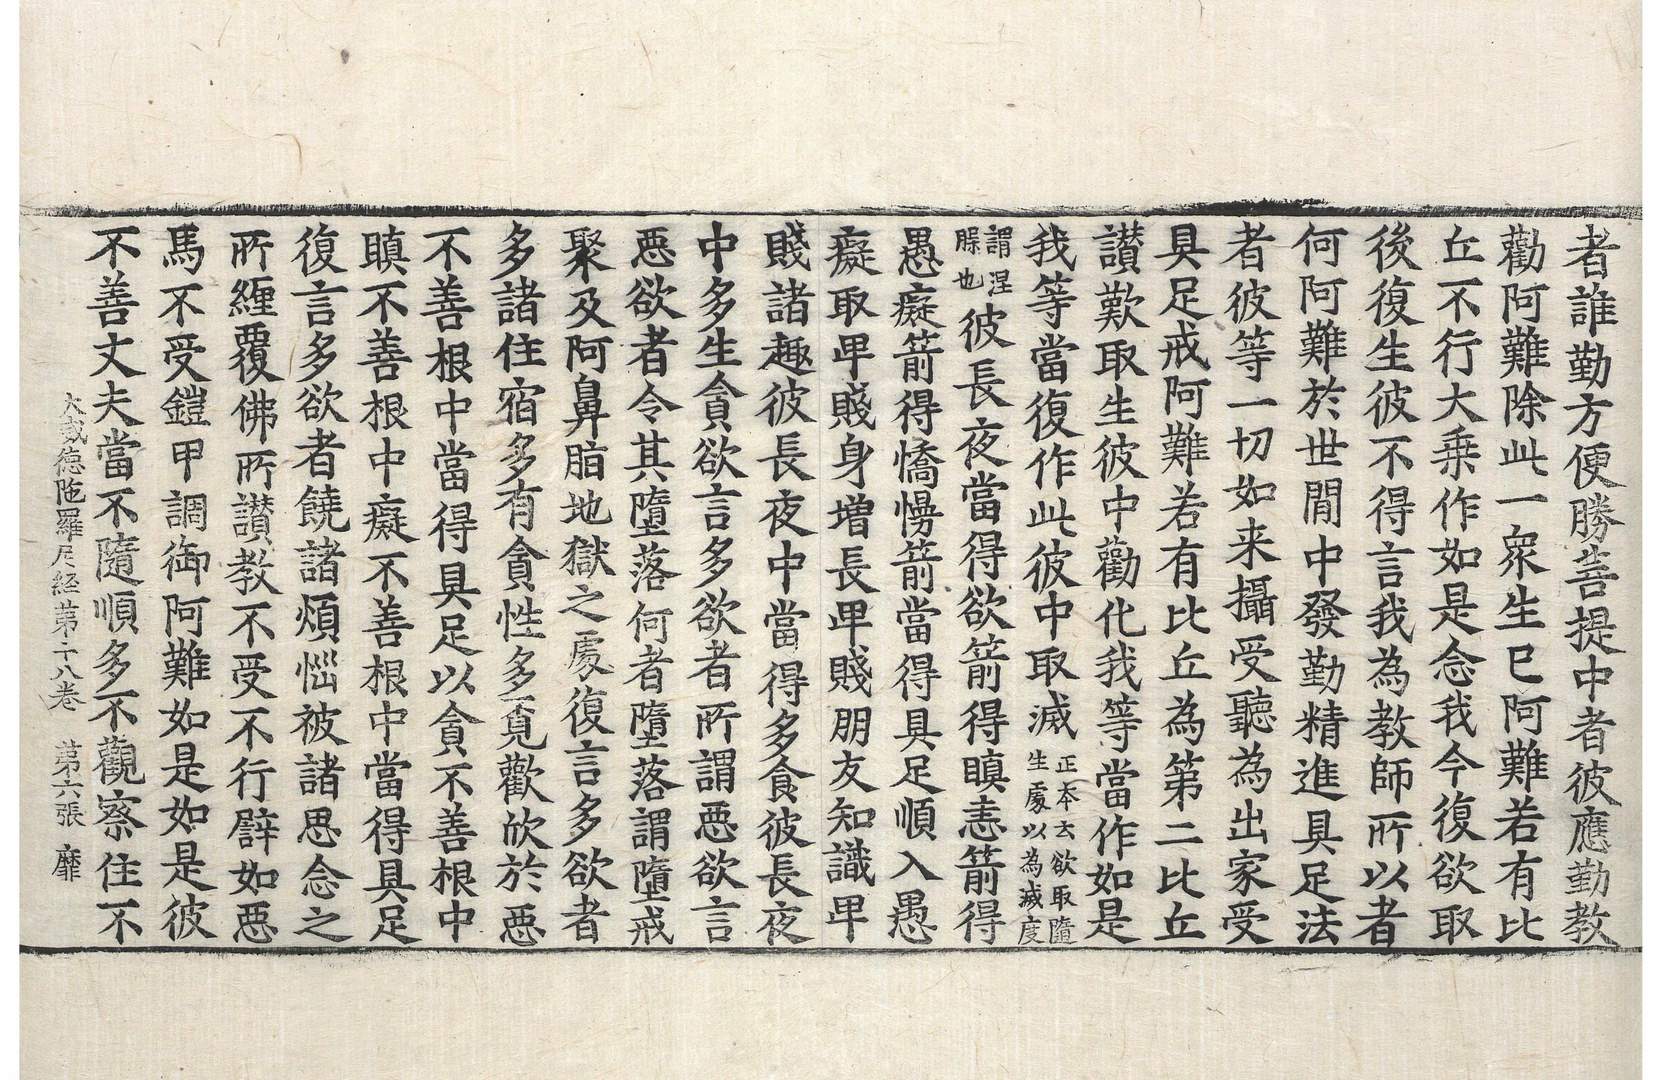 者誰勤方便勝菩提中者彼應勤教
勸阿難除此一衆生已阿難若有比
丘不行大乗作如是念我今復欲取
後復生彼不得言我為教師所以者
何阿難於世間中發勤精進具足法
者彼等一切如来攝受聽為出家受
具足戒阿難若有比丘為第二比丘
讃歎取生彼中勸化我等當作如是
我等當復作此彼中取滅正本云欲取隨生處以為滅度
謂涅髁也彼長夜當得欲箭得瞋恚箭得
愚癡箭得憍慢箭當得具足順入愚
癡取卑賤身增長卑賤朋友知識卑
賤諸趣彼長夜中當得多食彼長夜
中多生貪欲言多欲者所謂惡欲言
惡欲者令其墮落何者墮落謂墮戒
聚及阿鼻脂地獄之處復言多欲者
多諸住宿多有貪性多覓歡欣於惡
不善根中當得具足以貪不善根中
瞋不善根中癡不善根中當得具足
復言多欲者饒諸煩惱被諸思念之
所纏覆佛所讃教不受不行譬如惡
馬不受鎧甲調御阿難如是如是彼
不善丈夫當不隨順多不觀察住不
大威德陁羅尼経第十八卷　第六張　靡